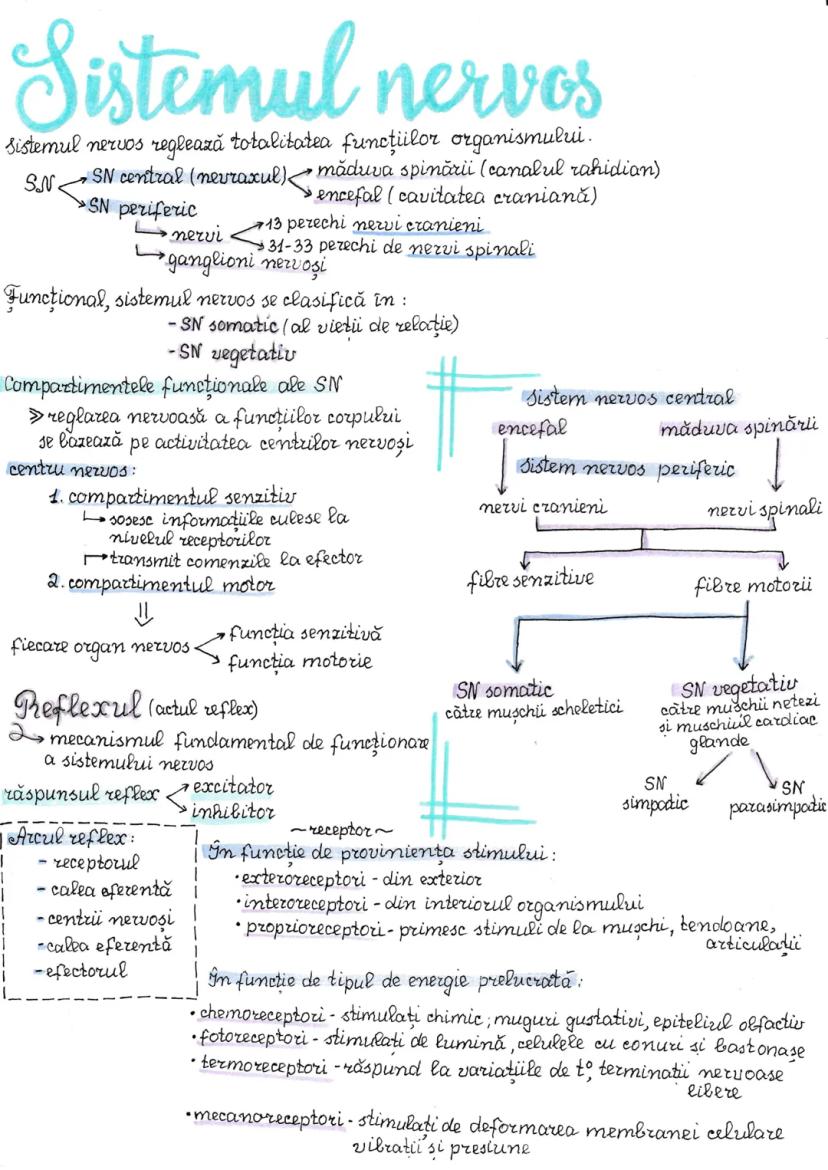 Sistemul nervos
Sistemul nervos reglează totalitatea funcțiilor organismului.
SN
SN central (nevraxul)
măduva spinării (canalul rahidian)
encefal (cavitatea craniană)
SN periferic
nervi
13 perechi nervi cranieni
31-33 perechi de nervi spinali
ganglioni nervoși
Funcțional, sistemul nervos se clasifică în :
- SN somatic (al vieții de relație)
- SN vegetativ
Compartimentele funcționale ale SN
reglarea nervoasă a funcțiilor corpului
se bazează pe activitatea centrilor nervoși
centru nervos:
1. compartimentul senzitiv
sosesc informațiile culese la
nivelul receptorilor
transmit comenzile la efector
2. compartimentul motor
fiecare organ nervos
funcția senzitivă
funcția motorie
Sistem nervos central
encefal măduva spinării
Sistem nervos periferic
nervi cranieni nervi spinali
fibre senzitive fibre motorii
SN somatic
către mușchii scheletici
SN vegetativ
către mușchii netezi
și muschiul cardiac
glande
SN
simpatic
SN
parasimpatic
Reflexul (actul reflex)
mecanismul fundamental de funcționare
a sistemului nervos
răspunsul reflex
excitator
inhibitor
Arcul reflex:
- receptorul
- calea eferentă
- centrii nervoși
- calea eferentă
- efectorul
~receptor~
În funcție de proviniența stimului :
• exteroreceptori - din exterior
• interoreceptori - din interiorul organismului
• proprioreceptori - primesc stimuli de la mușchi, tendoane,
articulații
În funcție de tipul de energie prelucrată :
• chemoreceptori - stimulați chimic ; muguri gustativi, epiteliul olfactiv
• fotoreceptori - stimulați de lumină, celulele cu conuri și bastonașe
• termoreceptori - răspund la variațiile de t°, terminatii nervoase
libere
• mecanoreceptori - stimulați de deformarea membranei celulare
vibrații și presiune